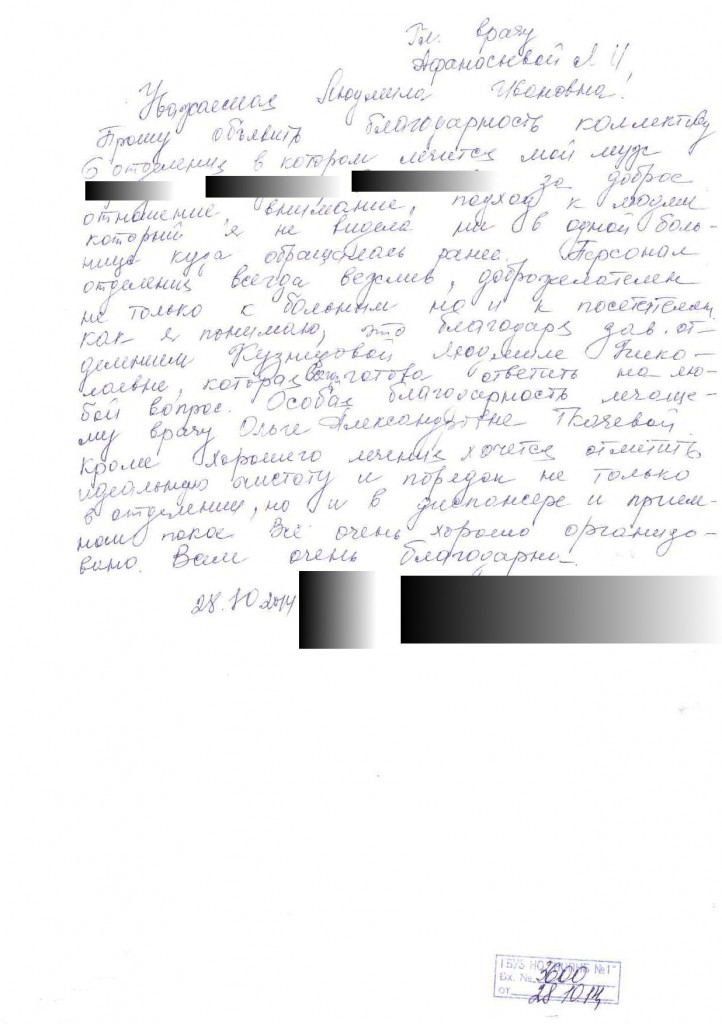 Гл. врачу
Афанасьевой Л И
Уважаемая Людмила Ивановна!
Прошу объявить благодарность коллективу
6 отделения в котором лечится мой муж
за доброе
отношение, внимание, подход к людям
который я не видела ни в одной боль-
нице куда обращалась ранее. Персонал
отделения всегда вежлив, доброжелателен
не только к больным но и к посетителям
как я понимаю, это благодаря зав. от-
делением Кузнецовой Людмиле Нико-
лаевне, которая всегда готова ответить на лю-
бой вопрос. Особая благодарность лечаще-
му врачу Ольге Александровне Ткачевой.
Кроме хорошего лечения хочется отметить
идеальную чистоту и порядок не только
в отделении, но и в диспансере и прием-
ном покое. Всё очень хорошо организо-
вано. Вам очень благодарны.
28.10.2014
ГБУЗ НО №1"
Вх. № 3600
от 28 10 14